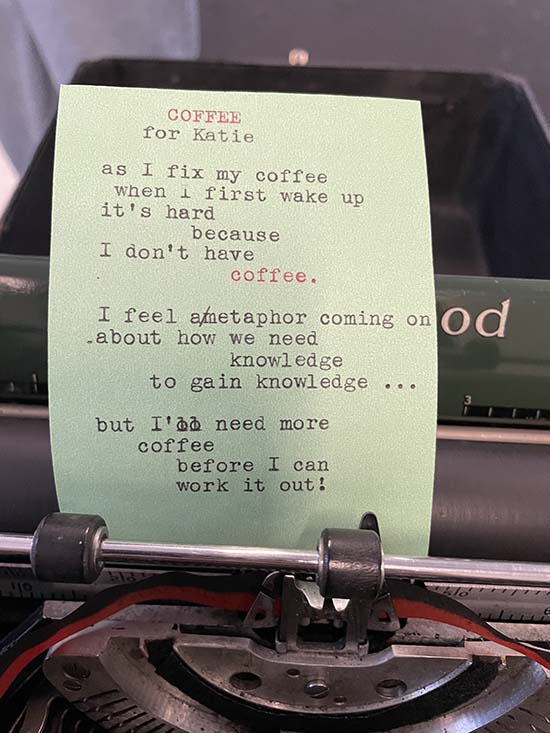 COFFEE
for Katie
as I fix my coffee
when i first wake up
it's hard
because
I don't have
coffee.
I feel a/metaphor coming on
.about how we need
knowledge
to gain knowledge ...
but I'll need more
coffee
before I can
work it out!
od
3